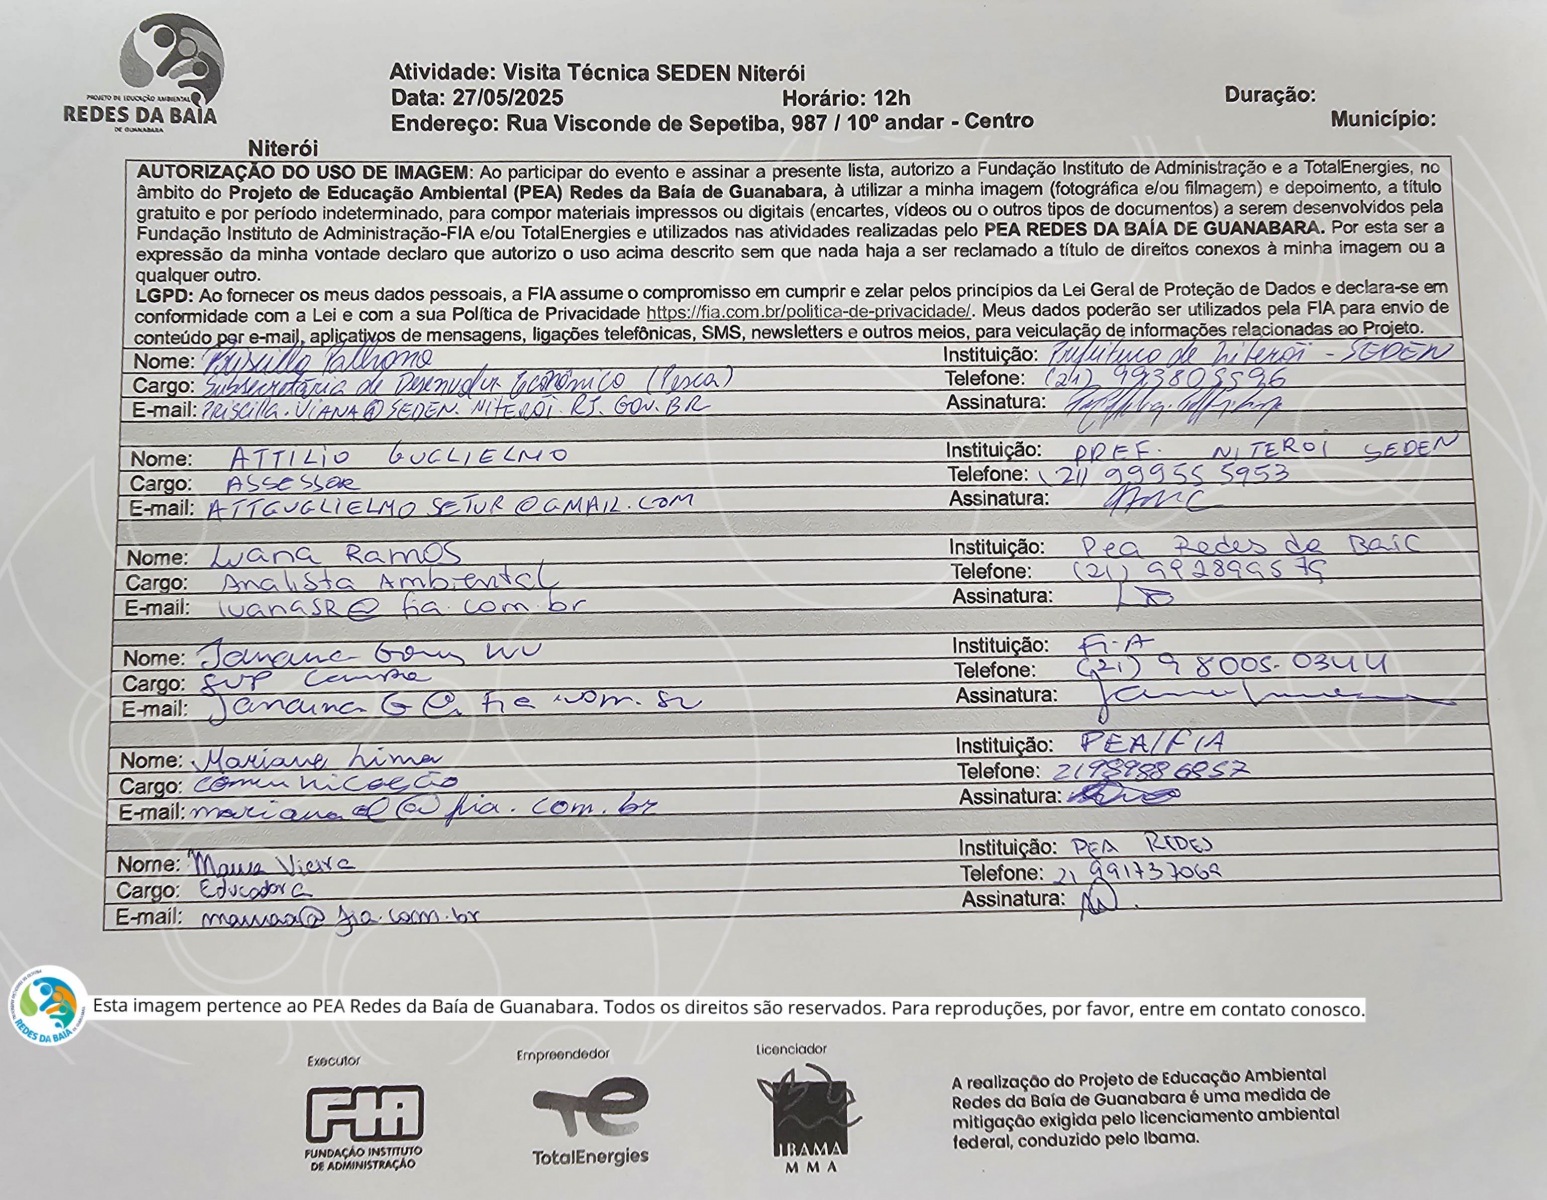 PROJETO DE EDUCAÇÃO AMBIENTAL
REDES DA BAÍA
DE GUANABARA
Atividade: Visita Técnica SEDEN Niterói
Data: 27/05/2025 Horário: 12h Duração:
Endereço: Rua Visconde de Sepetiba, 987 / 10º andar - Centro Município:
Niterói
AUTORIZAÇÃO DO USO DE IMAGEM: Ao participar do evento e assinar a presente lista, autorizo a Fundação Instituto de Administração e a TotalEnergies, no
âmbito do Projeto de Educação Ambiental (PEA) Redes da Baía de Guanabara, à utilizar a minha imagem (fotográfica e/ou filmagem) e depoimento, a título
gratuito e por período indeterminado, para compor materiais impressos ou digitais (encartes, vídeos ou o outros tipos de documentos) a serem desenvolvidos pela
Fundação Instituto de Administração-FIA e/ou TotalEnergies e utilizados nas atividades realizadas pelo PEA REDES DA BAÍA DE GUANABARA. Por esta ser a
expressão da minha vontade declaro que autorizo o uso acima descrito sem que nada haja a ser reclamado a título de direitos conexos à minha imagem ou a
qualquer outro.
LGPD: Ao fornecer os meus dados pessoais, a FIA assume o compromisso em cumprir e zelar pelos princípios da Lei Geral de Proteção de Dados e declara-se em
conformidade com a Lei e com a sua Política de Privacidade https://fia.com.br/politica-de-privacidade/. Meus dados poderão ser utilizados pela FIA para envio de
conteúdo por e-mail, aplicativos de mensagens, ligações telefônicas, SMS, newsletters e outros meios, para veiculação de informações relacionadas ao Projeto.
Nome: Priscilla Palhano Instituição: Prefeitura de Niterói - SEDEN
Cargo: Subsecretária de Desenvolv Econômico (Pesca) Telefone: (21) 993805596
E-mail: PRISCILLA.VIANA@SEDEN.NITEROI.RJ.GOV.BR Assinatura:
Nome: ATTILIO GUGLIELMO Instituição: PREF. NITEROI SEDEN
Cargo: ASSESSOR Telefone: (21) 99955 5953
E-mail: ATTGUGLIELMOSETUR@GMAIL.COM Assinatura:
Nome: Luana Ramos Instituição: Pea Redes da Baía
Cargo: Analista Ambiental Telefone: (21) 992899579
E-mail: luanasr@fia.com.br Assinatura:
Nome: Janaina Instituição: FIA
Cargo: SUP Telefone: (21) 9 8005-0344
E-mail: Assinatura:
Nome: Mariana Lima Instituição: PEA/FIA
Cargo: comunicação Telefone: 21989886857
E-mail: marianaol@fia.com.br Assinatura:
Nome: Maura Vieira Instituição: PEA REDES
Cargo: Educadora Telefone: 21 991737069
E-mail: mauraa@fia.com.br Assinatura:
REDES DA BAÍA
Esta imagem pertence ao PEA Redes da Baía de Guanabara. Todos os direitos são reservados. Para reproduções, por favor, entre em contato conosco.
Executor
FIA
FUNDAÇÃO INSTITUTO
DE ADMINISTRAÇÃO
Empreendedor
TotalEnergies
Licenciador
IBAMA
MMA
A realização do Projeto de Educação Ambiental
Redes da Baía de Guanabara é uma medida de
mitigação exigida pelo licenciamento ambiental
federal, conduzido pelo Ibama.